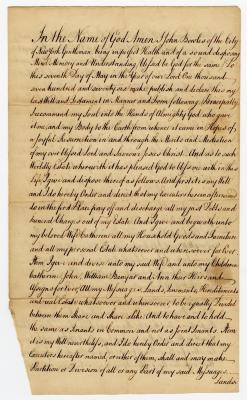 In the Name of God Amen I John Bowles of the City
of New York Gentleman being in perfect Health and of a sound disposing
Mind Memory and Understanding blessed be God for the same Do
this seventh Day of May in the Year of our Lord One thousand
seven hundred and seventy six make publish and declare this my
last Will and Testament in Manner and Form following Principally
I recommend my soul into the Hands of Almighty God who gave
it me, and my Body to the Earth from whence it came in Hopes of
a Joyfull Resurrection in and through the Merits and Mediation
of my ever blessed Lord and Saviour Jesus Christ And as to such
Worldly Estate wherewith it has pleased God to bless me with in this
Life I give and dispose thereof as follows And first it is my Will
and I do hereby Order and direct that my Executors herein after named
do in the first Place pay off and discharge all my just Debts and
funeral Charges out of my Estate And I give and bequeath unto
my beloved Wife Catherine all my Household Goods and Furniture
and all my personal Estate whatsoever and wheresoever for Ever
Item I give and devise unto my said Wife and unto my Children
Catherine John, William, and Ann their Heirs and
Assigns for ever All my Messuages Lands, Tenements Hereditaments
and real Estate whatsoever and wheresoever to be equally Divided
between them Share and Share alike And to have and to hold
the same as Tenants in Common and not as Joint Tenants Item
it is my Will and I do hereby Order and direct that my
Executors hereafter named, or either of them, shall and may make
Partition or Division of all or any Part of my said Messuages
Lands